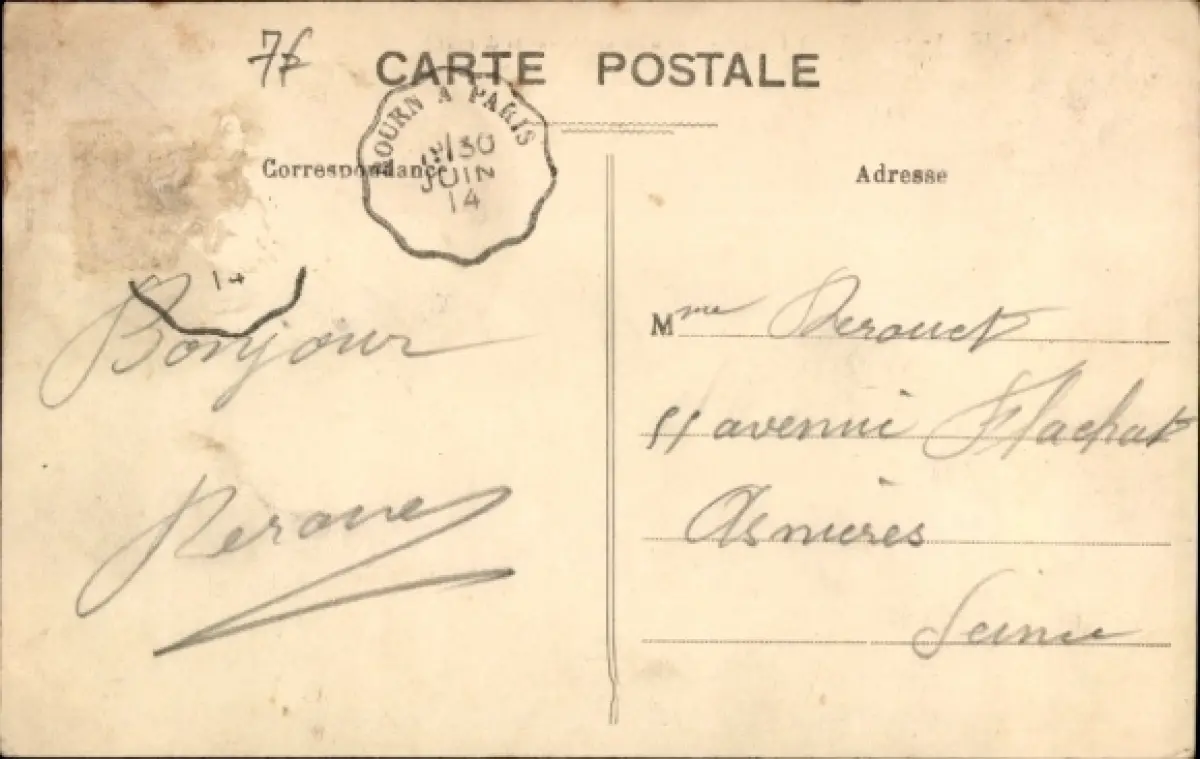 7f
CARTE POSTALE
TOURN A PARIS
30
JUIN
14
Correspondance
Adresse
14
Bonjour
Mme Derouet
11 avenue Flachat
Asnières
Seine